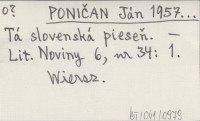 o? PONIČAN Ján 1957...
Tá slovenská pieseň. —
Lit. Noviny 6, nr 34: 1.
Wiersz.